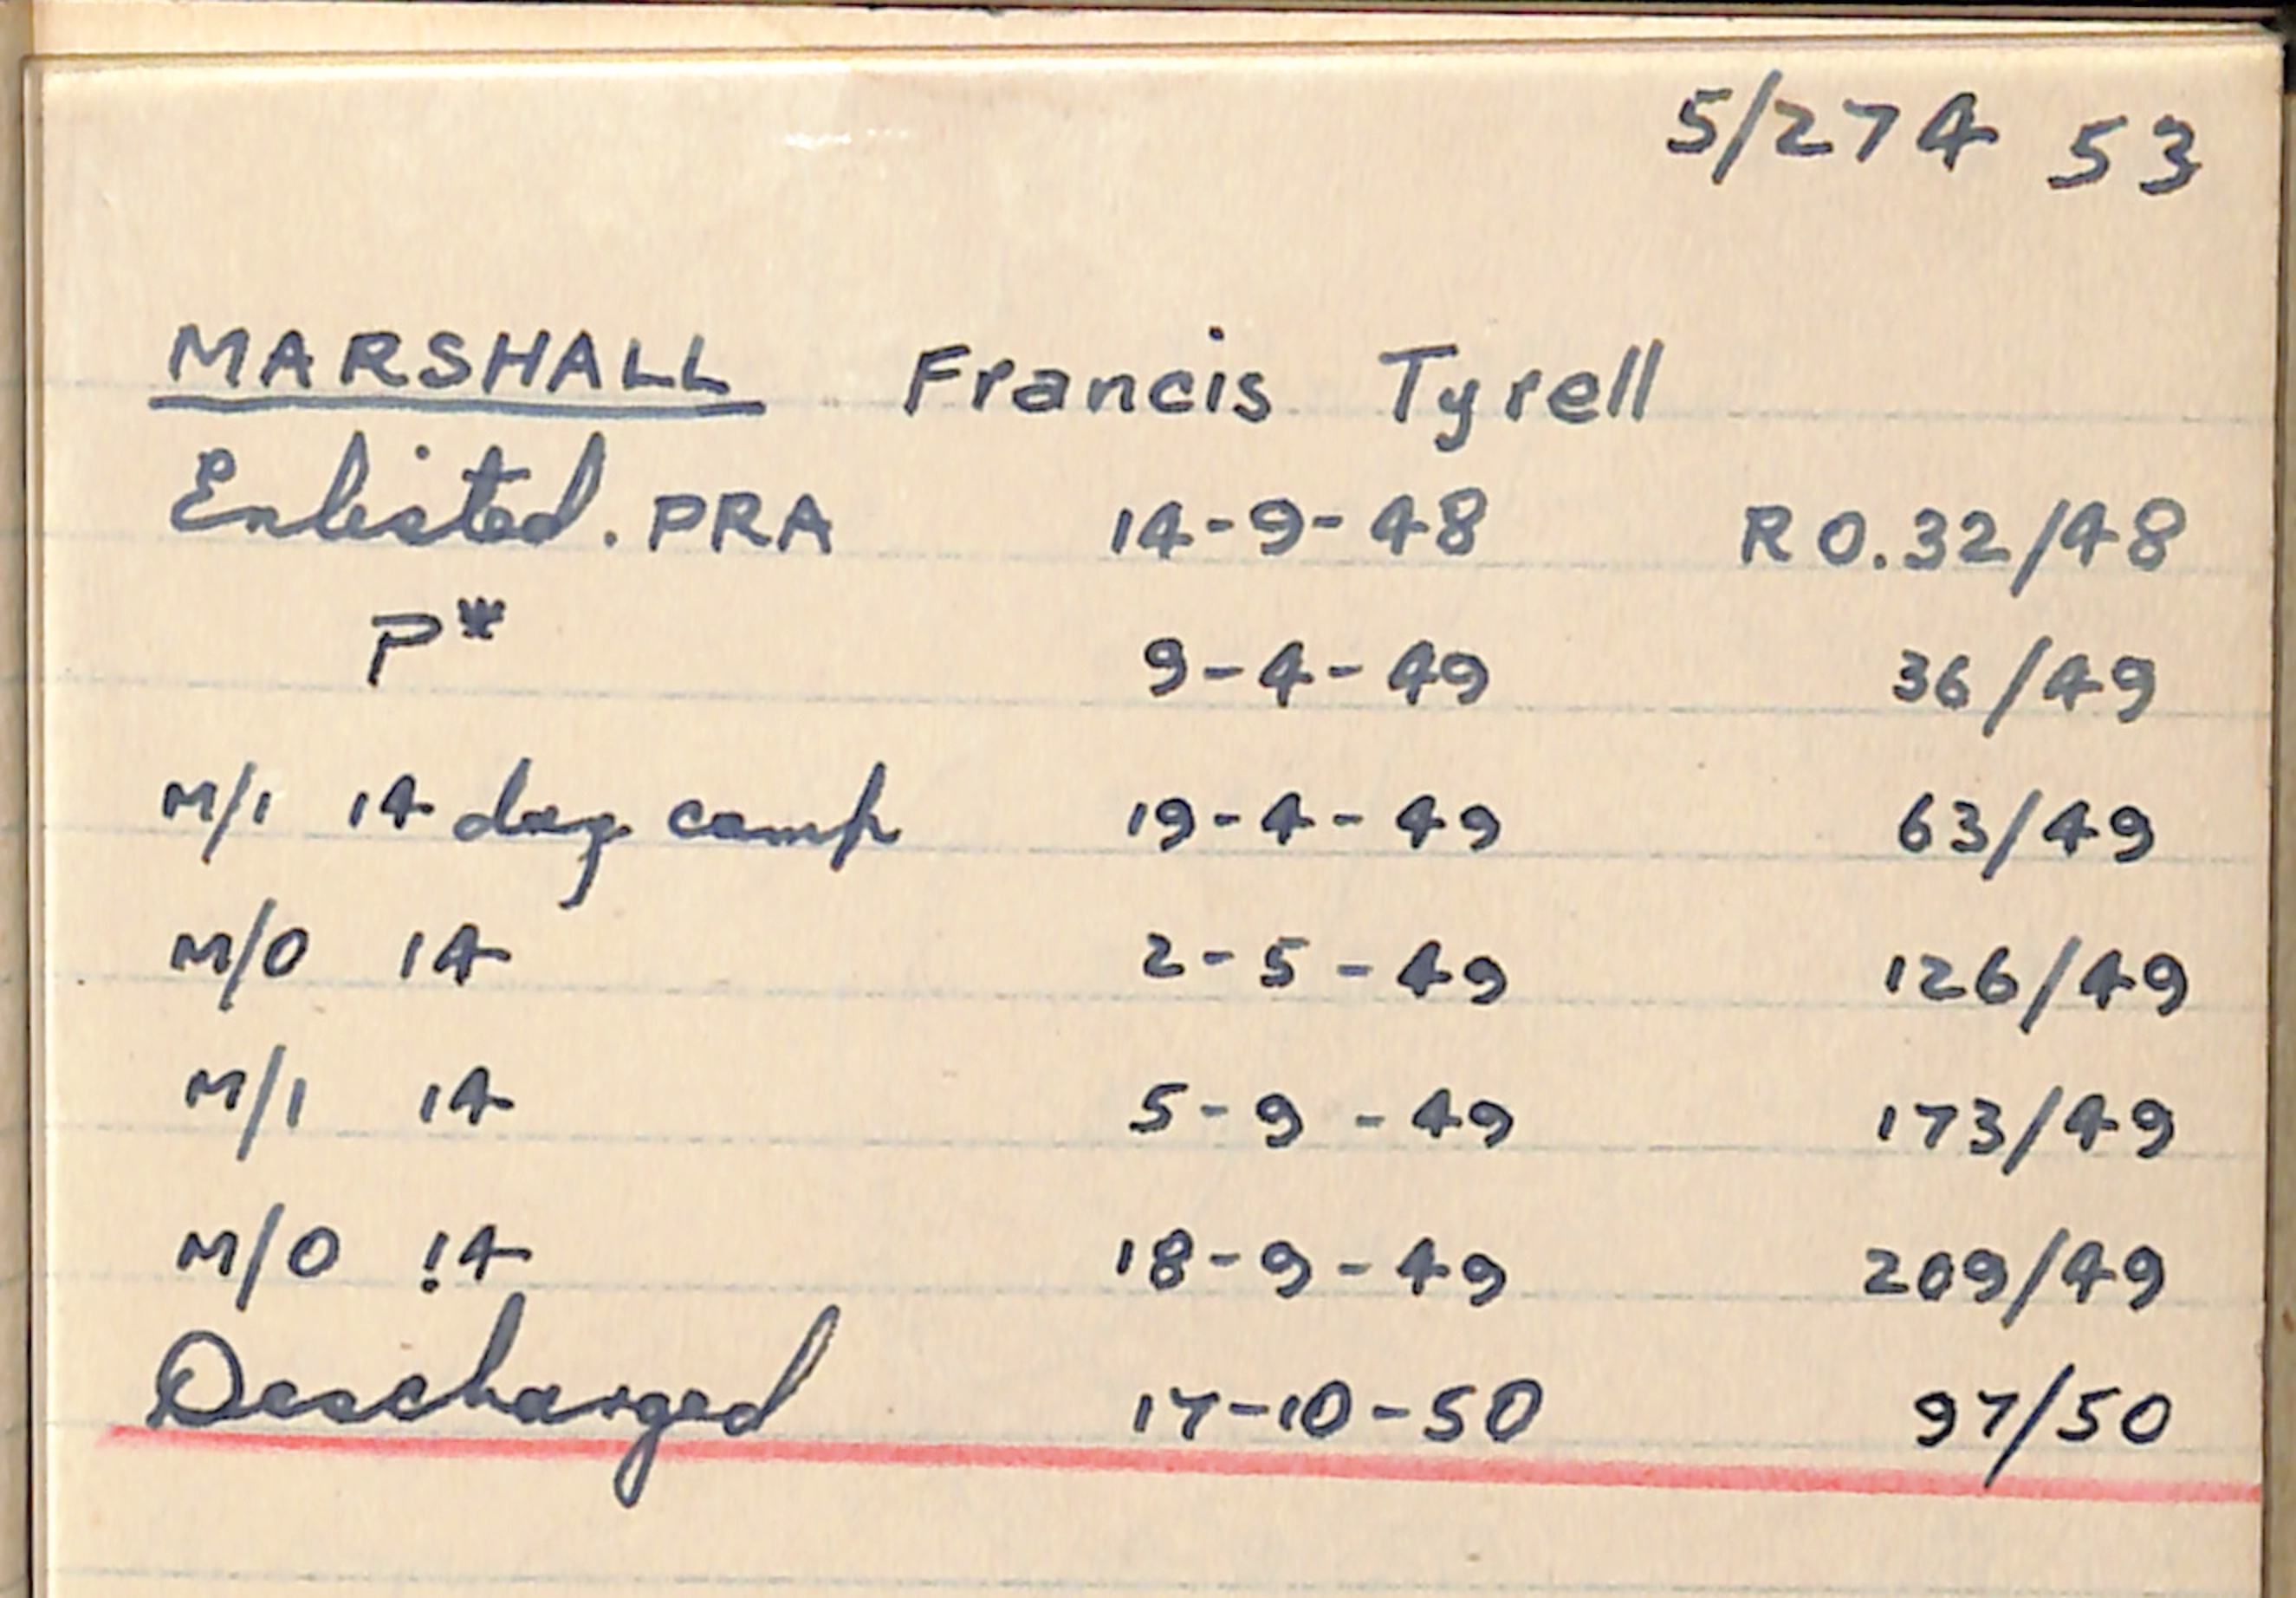 5/274 53
MARSHALL Francis Tyrell
Enlisted. PRA 14-9-48 RO.32/48
P* 9-4-49 36/49
M/1 14 day camp 19-4-49 63/49
M/O 14 2-5-49 126/49
M/1 14 5-9-49 173/49
M/O 14 18-9-49 209/49
Discharged 17-10-50 97/50